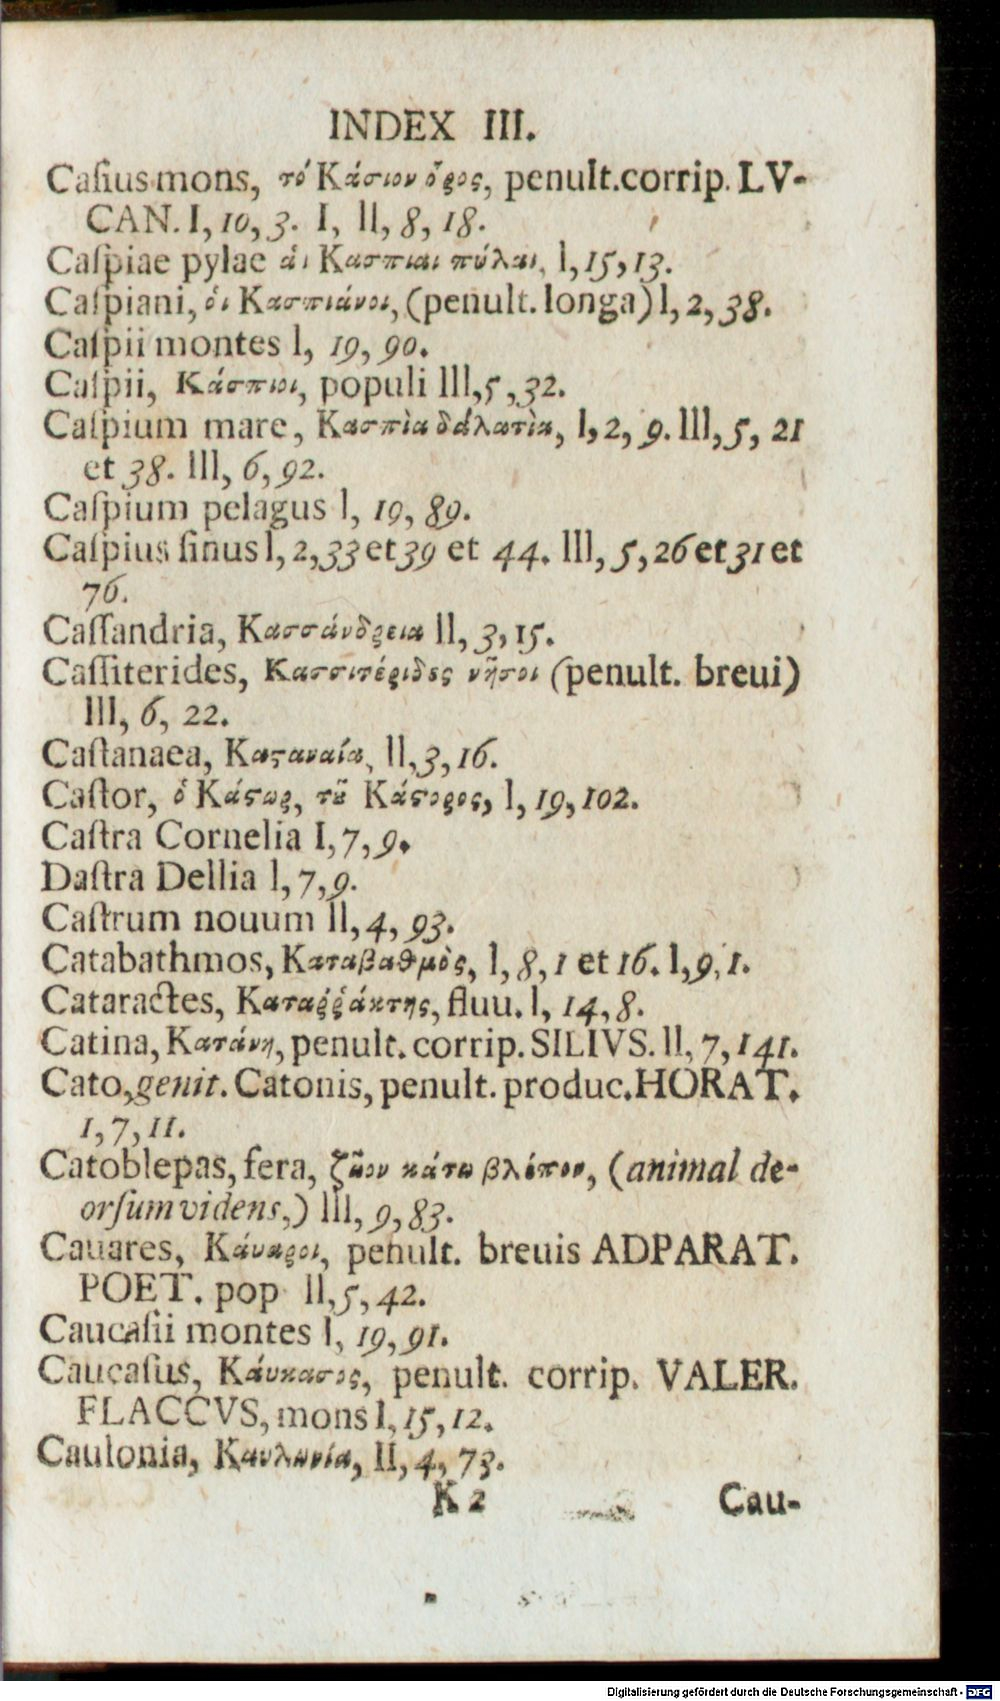 INDEX III.
Caſius mons, τό Κάσιον ὄρος, penult. corrip. LV-
CAN. I, 10, 3. I, II, 8, 18.
Caſpiae pylae ἁι Κασπιαι πύλαι, I, 15, 13.
Caſpiani, ὁι Κασπιάνοι, (penult. longa) I, 2, 38.
Caſpii montes I, 19, 90.
Caſpii, Κάσπιοι, populi III, 5, 32.
Caſpium mare, Κασπὶα δάλατὶα, I, 2, 9. III, 5, 21
et 38. III, 6, 92.
Caſpium pelagus I, 19, 89.
Caſpius ſinus I, 2, 33 et 39 et 44. III, 5, 26 et 31 et
76.
Caſſandria, Κασσάνδρεια II, 3, 15.
Caſſiterides, Κασσιτέριδες νῆσοι (penult. breui)
III, 6, 22.
Caſtanaea, Καϛαναία, II, 3, 16.
Caſtor, ὁ Κάϛωρ, τῦ Κάϛορος, I, 19, 102.
Caſtra Cornelia I, 7, 9.
Daſtra Dellia I, 7, 9.
Caſtrum nouum II, 4, 93.
Catabathmos, Καταβαθμὸς, I, 8, 1 et 16. I, 9, 1.
Cataractes, Καταῤῥάκτης, fluu. I, 14, 8.
Catina, Κατάνη, penult. corrip. SILIVS. II, 7, 141.
Cato, genit. Catonis, penult. produc. HORAT.
1, 7, 11.
Catoblepas, fera, ζῶον κάτω βλέπον, (animal de-
orſum videns,) III, 9, 83.
Cauares, Κάυαροι, penult. breuis ADPARAT.
POET. pop II, 5, 42.
Caucaſii montes I, 19, 91.
Caucaſus, Κάυκασος, penult. corrip. VALER.
FLACCVS, mons I, 15, 12.
Caulonia, Καυλωνία, II, 4, 73.
K 2 Cau-
Digitalisierung gefördert durch die Deutsche Forschungsgemeinschaft - DFG